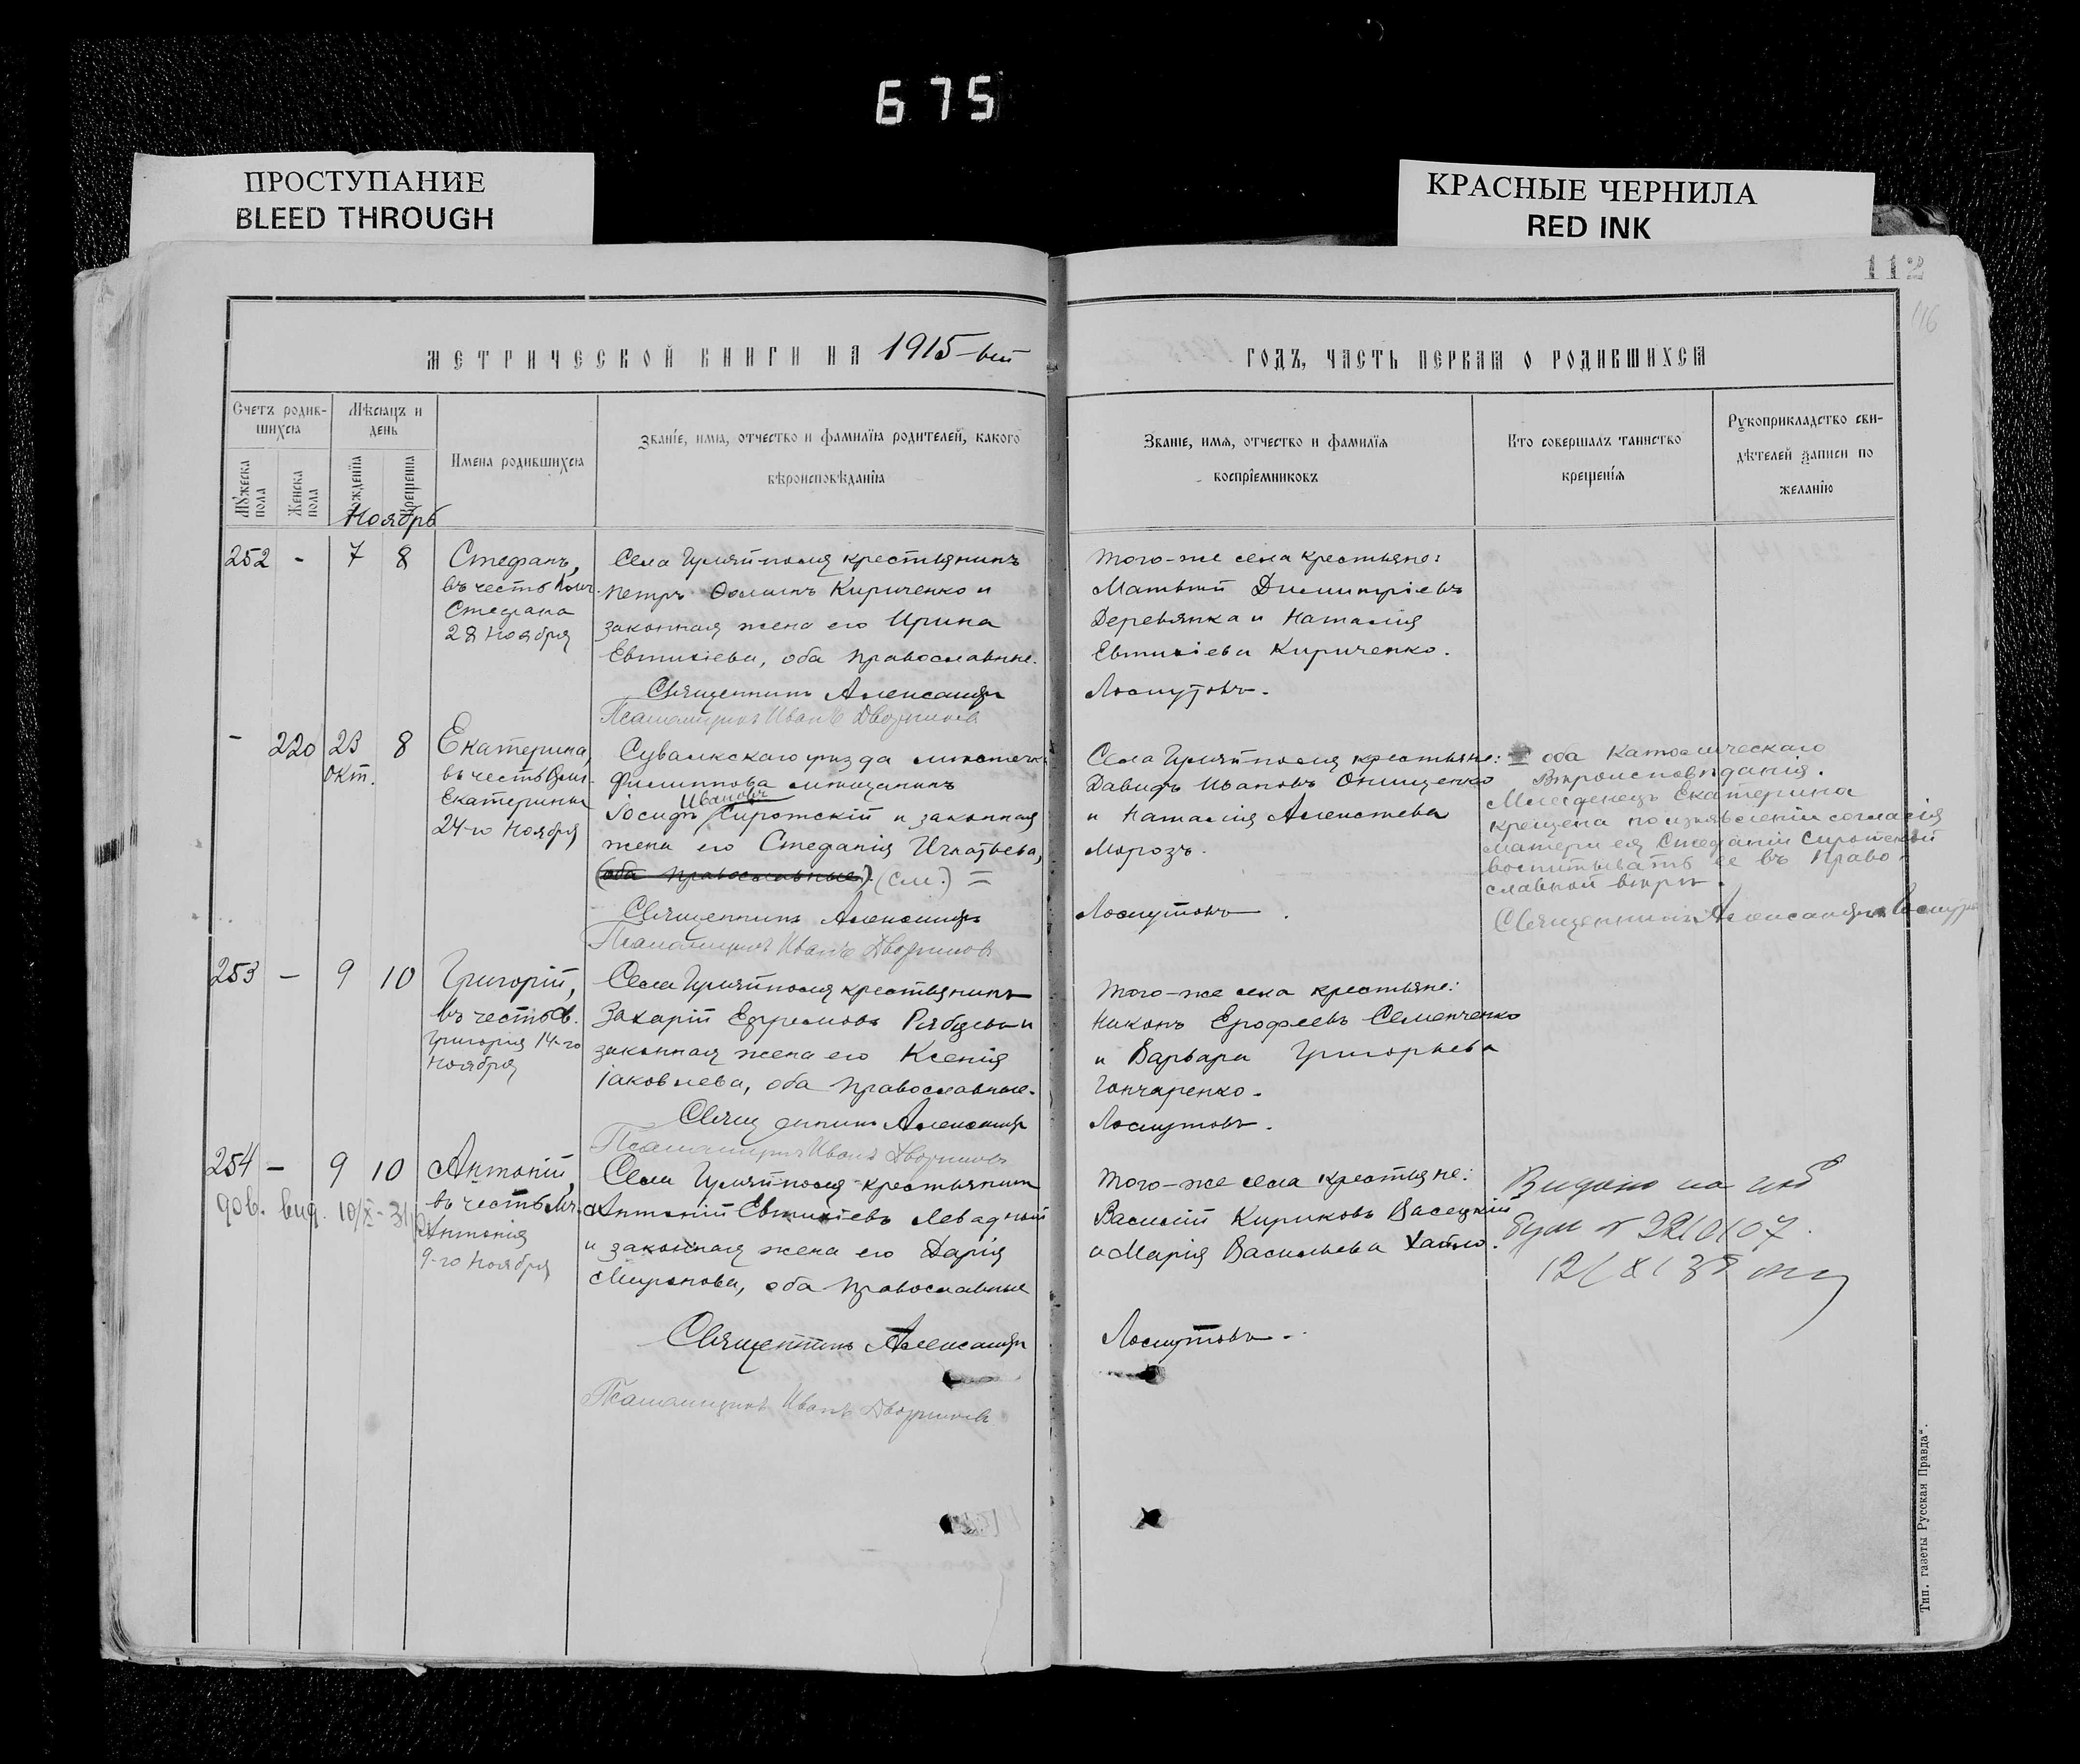 675
ПРОСТУПАНИЕ
BLEED THROUGH
КРАСНЫЕ ЧЕРНИЛА
RED INK
112
116
МЕТРИЧЕСКОЙ КНИГИ НА 1915-ый
ГОДЪ, ЧАСТЬ ПЕРВАЯ О РОДИВШИХСЯ
Счетъ родив-
шихся
Мѣсяцъ и
день
Мужеска пола
Женска пола
Рожденія
Крещенія
Имена родившихся
Званіе, имя, отчество и фамилія родителей, какого
вѣроисповѣданія
Званіе, имя, отчество и фамилія
воспріемниковъ
Кто совершалъ таинство
крещенія
Рукоприкладство сви-
дѣтелей записи по
желанію
Ноябрь
252 - 7 8
Стефанъ,
въ честь
Стефана
28 Ноября
Села Гуляйполя крестьянинъ
Петръ Кириченко и
законная жена его Ирина
Евтихіева, оба православные.
Священникъ Александръ
Псаломщикъ Иванъ Дворниковъ
Того-же села крестьяне:
Матвѣй Димитріевъ
Деревянка и Наталія
Евтихіева Кириченко.
Лоскутовъ.
- 220 23 8
Окт.
Екатерина,
въ честь
Екатерины
24-го Ноября
Сувалкскаго уѣзда мѣстечка
Филиппова мѣщанинъ
Ивановъ
Іосифъ Сиротскій и законная
жена его Стефанія Игнатьева,
(оба православные). (см.) =
Священникъ Александръ
Псаломщикъ Иванъ Дворниковъ
Села Гуляйполя крестьяне:
Давидъ Ивановъ Онищенко
и Наталія Алексѣева
Морозъ.
Лоскутовъ.
= оба Католическаго
Вѣроисповѣданія.
Младенецъ Екатерина
крещена по изъявленіи согласія
матери ея Стефаніи Сиротской
воспитывать ее въ Право-
славной вѣрѣ.
Священникъ Александръ Лоскутовъ
253 - 9 10
Григорій,
въ честь св.
Григорія 14-го
Ноября
Села Гуляйполя крестьянинъ
Захарій Ефремовъ Рябцевъ и
законная жена его Ксенія
Іаковлева, оба православные.
Священникъ Александръ
Псаломщикъ Иванъ Дворниковъ
Того-же села крестьяне:
Никонъ Ерофеевъ Семенченко
и Варвара Григорьева
Гончаренко.
Лоскутовъ.
254 - 9 10
вид. 10/X - 31
Антоній,
въ честь Мч.
Антонія
9-го Ноября
Села Гуляйполя крестьянинъ
Антоній Евтихіевъ Левадный
и законная жена его Дарія
Миронова, оба православные
Священникъ Александръ
Псаломщикъ Иванъ Дворниковъ
Того-же села крестьяне:
Василій Кириковъ Васецкій
и Марія Васильева
Лоскутовъ.
Видано на
12/XI 38
Тип. газеты Русская Правда“.